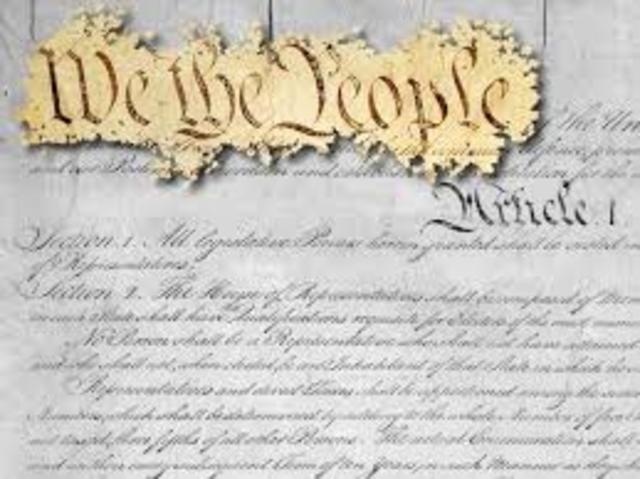 We the People
the Uni
Article 1
Section 1. All legislative Powers herein granted shall be vested
of Representatives.
Section 2. The House of Representatives shall be composed of Mem
in each State shall have Qualifications requisite for Electors of the most
No Person shall be a Representative who shall not have attained
and who shall not, when elected, be an Inhabitant of that State in which he
Representatives and direct Taxes shall be apportioned among the
Numbers, which shall be determined by adding to the whole Number of free
not taxed, three fifths of all other Persons. The actual Enumeration shall
and within every subsequent Term of ten Years, in such Manner as they